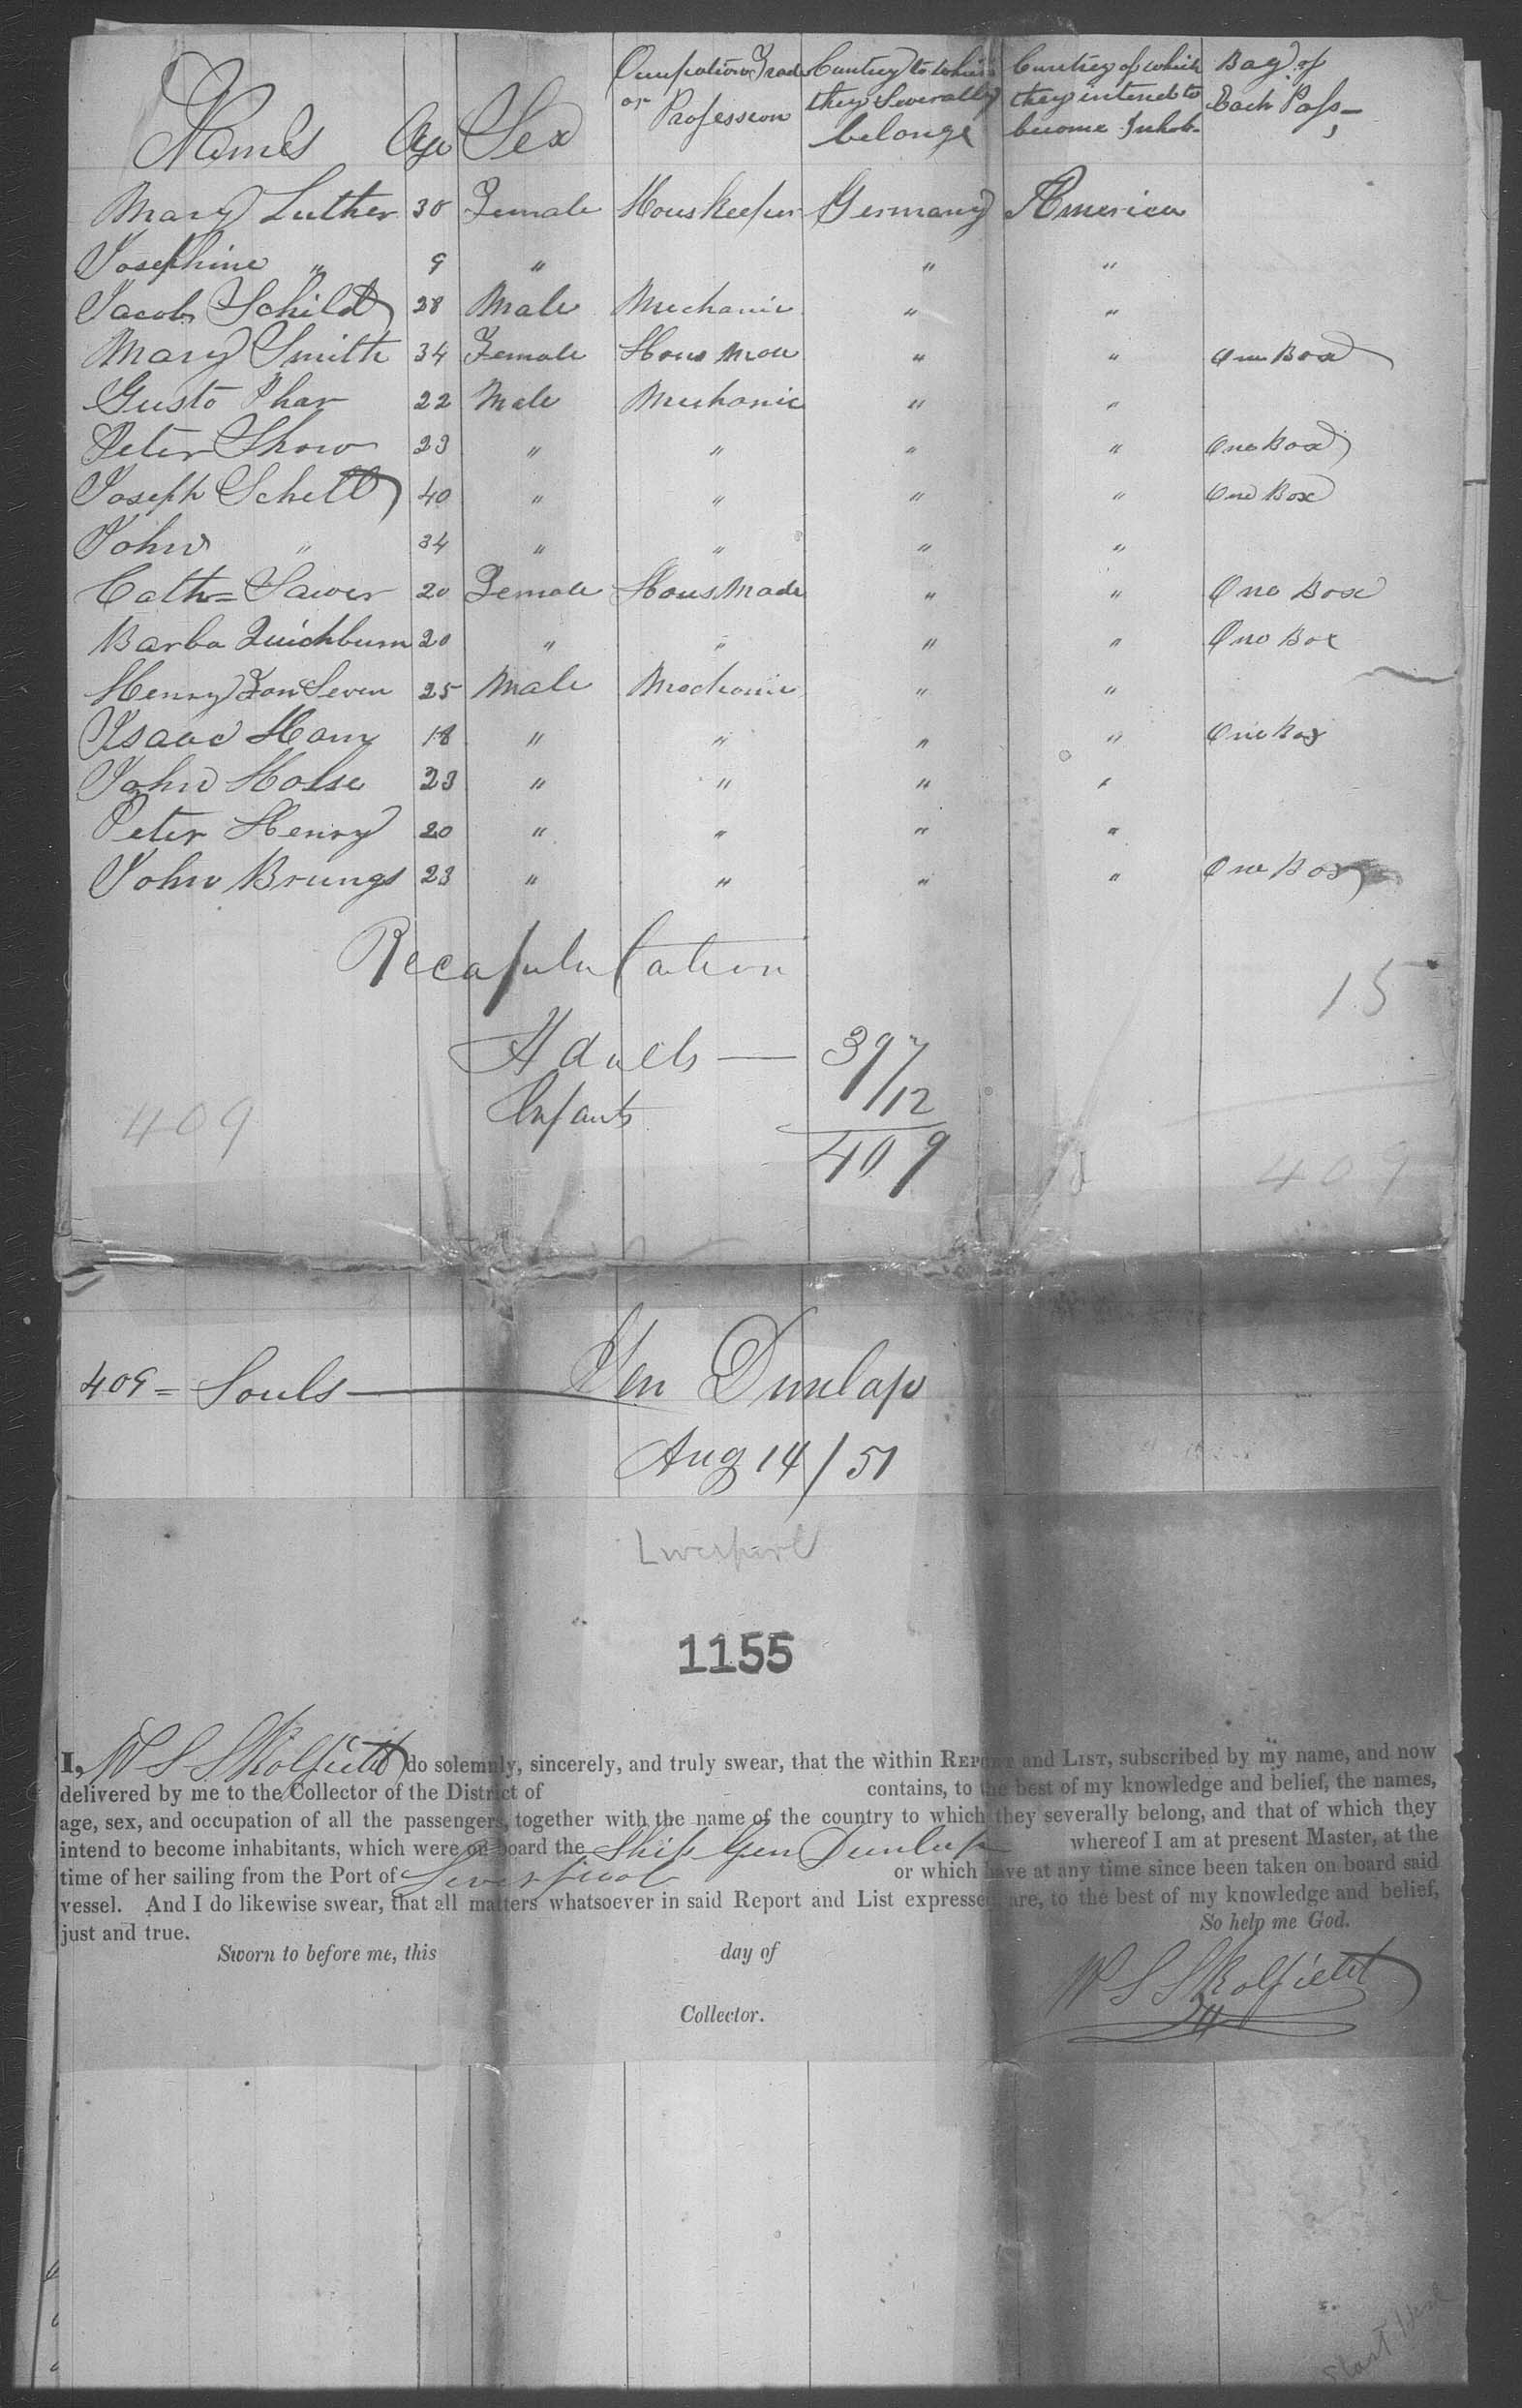 Names Age Sex Occupation Trade or Profession Country to which they Severally belonge Country of which they intend to become Inhab- Bag. of Each Pass-
Mary Luther 30 Female Houskeeper Germany America
Josephine " 9 " " "
Jacob Schildt 28 Male Mechanic " "
Mary Smith 34 Female Hous Made " " One Box
Gusto Phar 22 Male Mechanic " "
Peter Show 23 " " " " One Box
Joseph Schelt 40 " " " " One Box
John " 34 " " " "
Cath= Sawer 20 Female Hous Made " " One Box
Barba 20 " " " " One Box
Henry Seven 25 Male Mechanic " "
Isaac Ham 18 " " " " One Box
John Holse 23 " " " "
Peter Henry 20 " " " "
John Brungs 23 " " " " One Box
Recapitulation
15
Adults — 397
Infants 12
409 409 409
409 = Souls — Gen Dunlap
Aug 14/51
Liverpool
1155
I, W S Skolfield do solemnly, sincerely, and truly swear, that the within REPORT and LIST, subscribed by my name, and now
delivered by me to the Collector of the District of contains, to the best of my knowledge and belief, the names,
age, sex, and occupation of all the passengers, together with the name of the country to which they severally belong, and that of which they
intend to become inhabitants, which were on board the Ship Gen Dunlap whereof I am at present Master, at the
time of her sailing from the Port of Liverpool or which have at any time since been taken on board said
vessel. And I do likewise swear, that all matters whatsoever in said Report and List expressed are, to the best of my knowledge and belief,
just and true. So help me God.
Sworn to before me, this day of
W S Skolfield
Collector.
Start Here